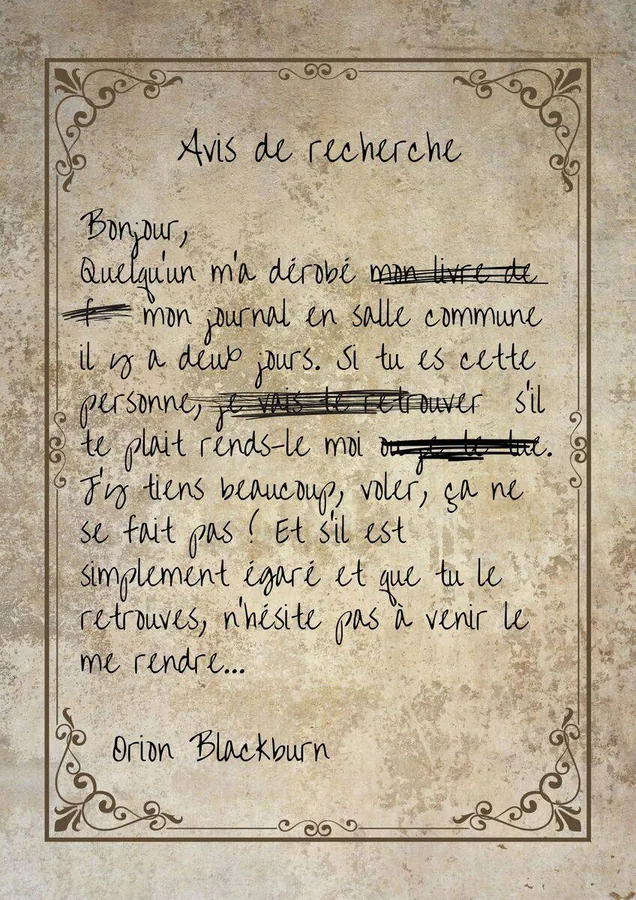 Avis de recherche
Bonjour,
Quelqu'un m'a dérobé mon livre de
f mon journal en salle commune
il y a deux jours. Si tu es cette
personne, je vais te retrouver s'il
te plait rends-le moi ou je te tue.
J'y tiens beaucoup, voler, ça ne
se fait pas ! Et s'il est
simplement égaré et que tu le
retrouves, n'hésite pas à venir le
me rendre...
Orion Blackburn